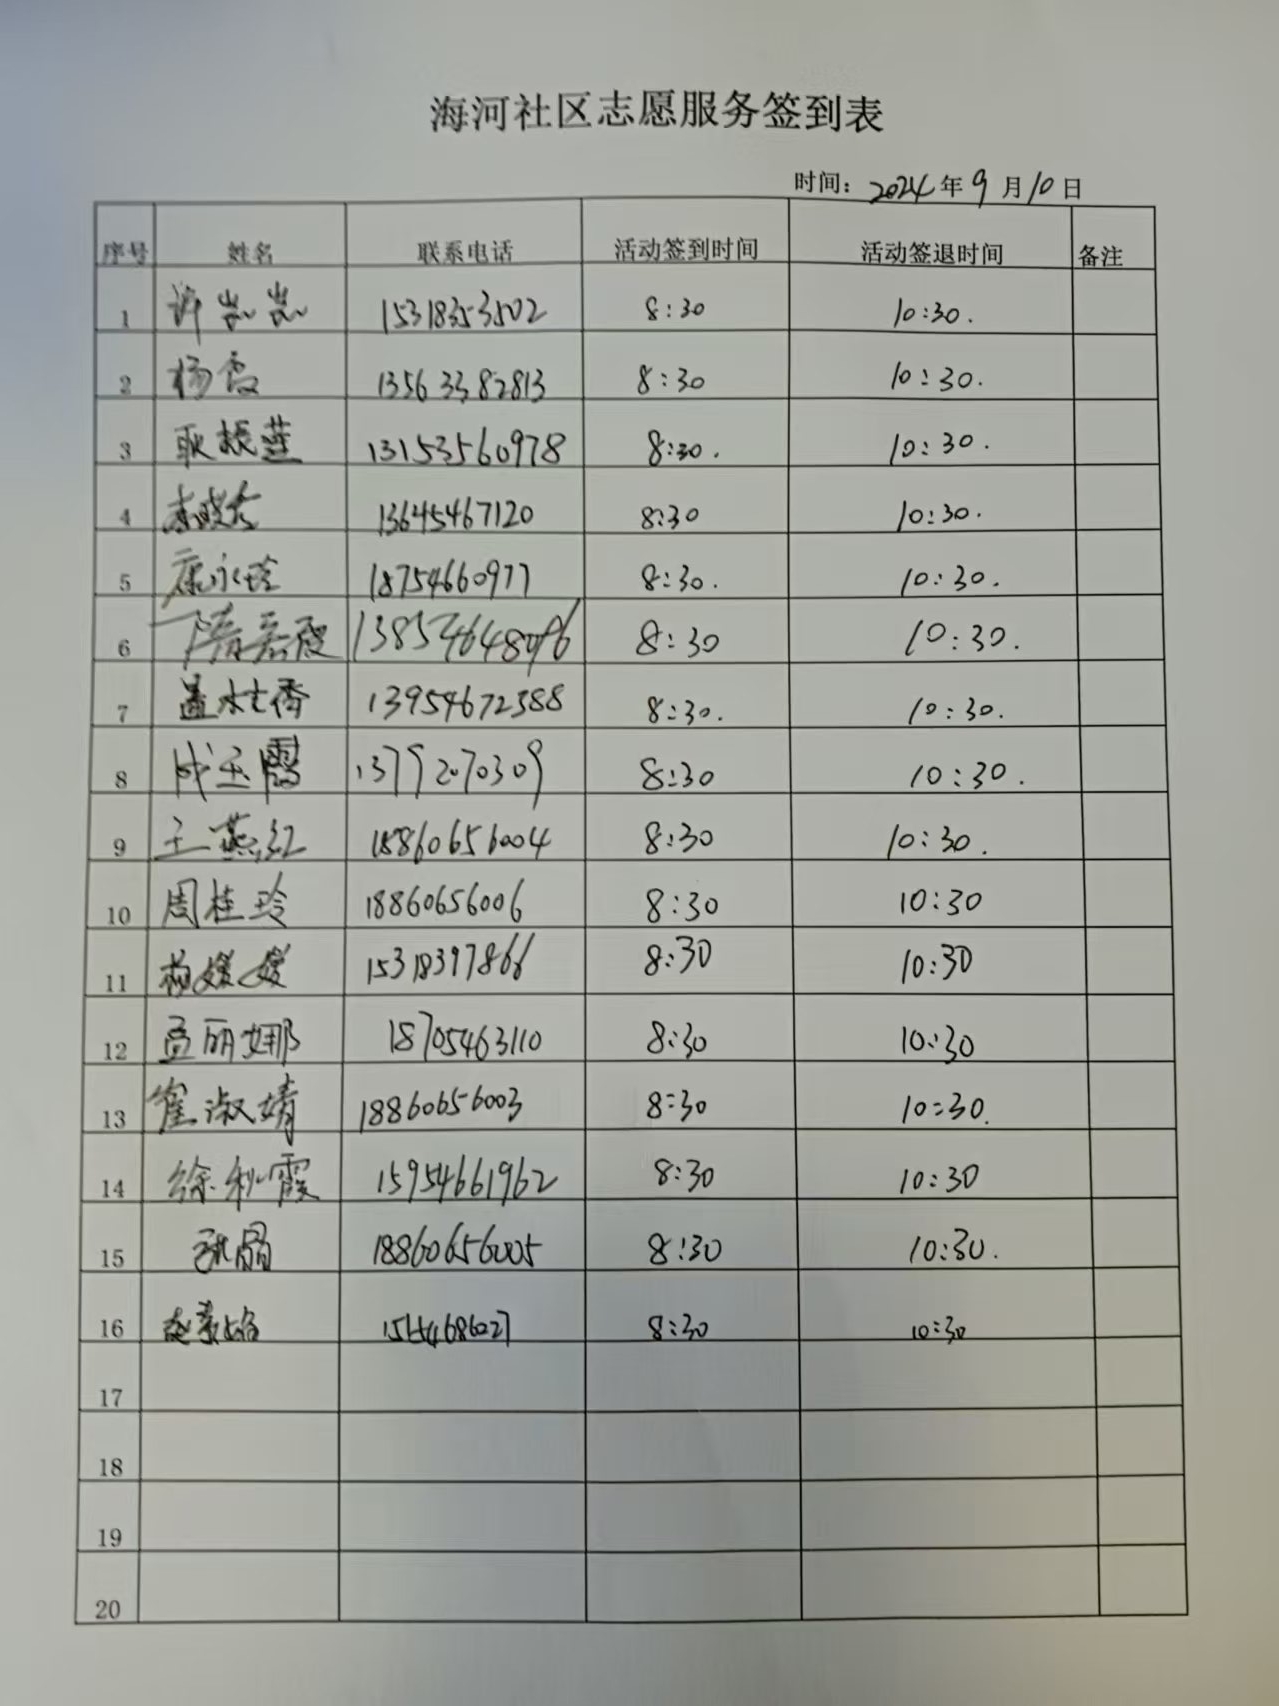 海河社区志愿服务签到表
时间：2024年9月10日
序号 姓名 联系电话 活动签到时间 活动签退时间 备注
1 许 15318353502 8:30 10:30.
2 杨霞 13563382813 8:30 10:30.
3 耿振燕 13153560978 8:30. 10:30.
4 13645467120 8:30 10:30.
5 康永玲 18754660977 8:30. 10:30.
6 隋 8:30 10:30.
7 盖 香 13954672388 8:30. 10:30.
8 成玉霞 13792070309 8:30 10:30.
9 王燕红 18860656004 8:30 10:30.
10 周桂玲 18860656006 8:30 10:30
11 杨媛媛 15318397866 8:30 10:30
12 孟丽娜 18705463110 8:30 10:30
13 崔淑婧 18860656003 8:30 10:30.
14 徐秋霞 15954661962 8:30 10:30
15 18860656005 8:30 10:30.
16 8:30 10:30
17
18
19
20